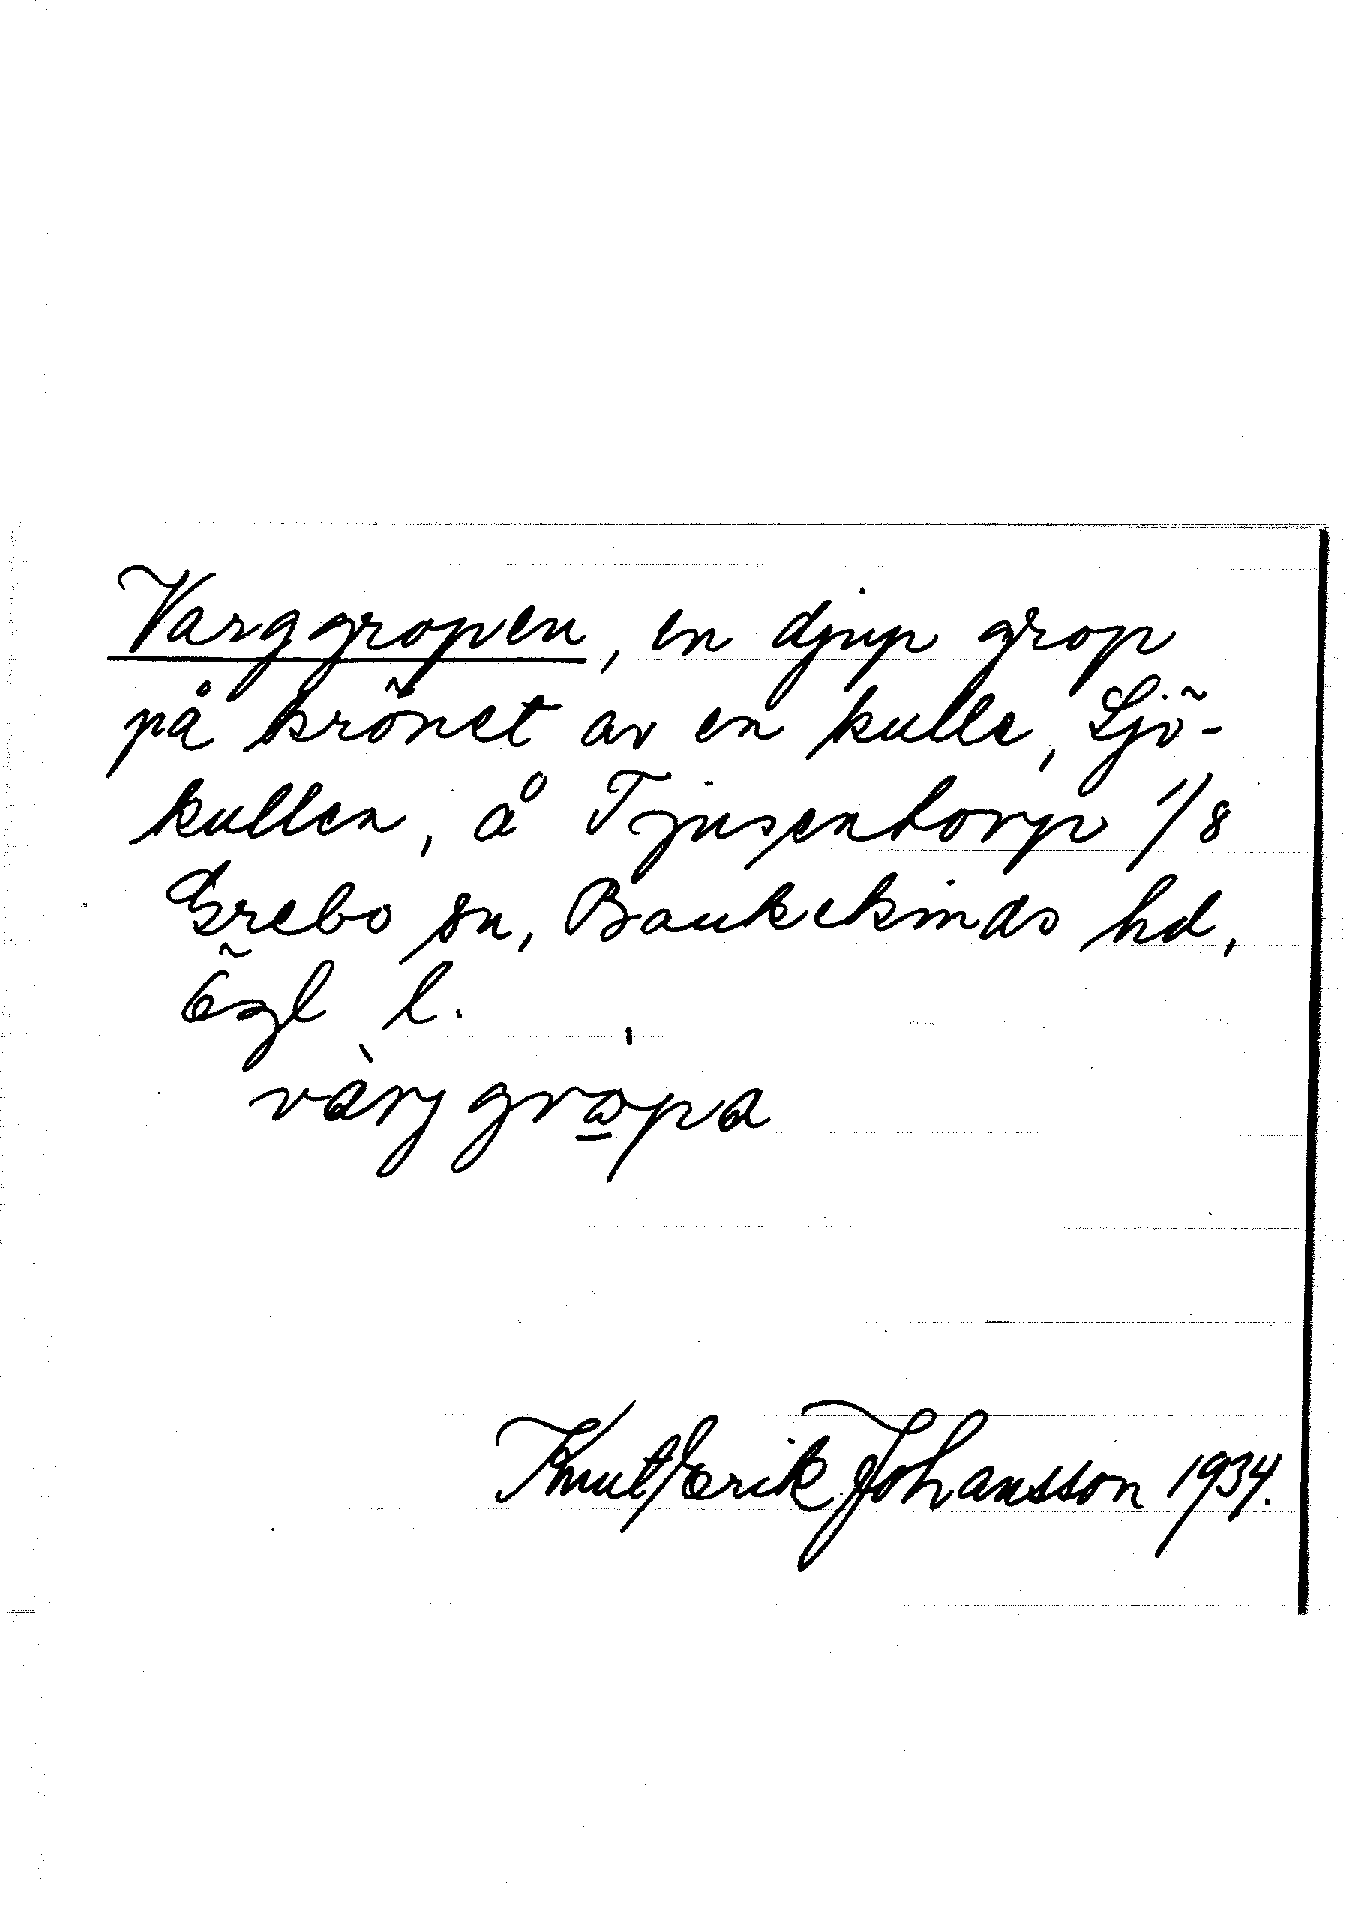 Varggropen, en djup grop
på krönet av en kulle, Sjö-
kullen, å Tjusentorp 1/8
Grebo sn, Bankekinds hd,
Ögl l.
vàrjgrọpa
Knut/Erik Johansson 1934.